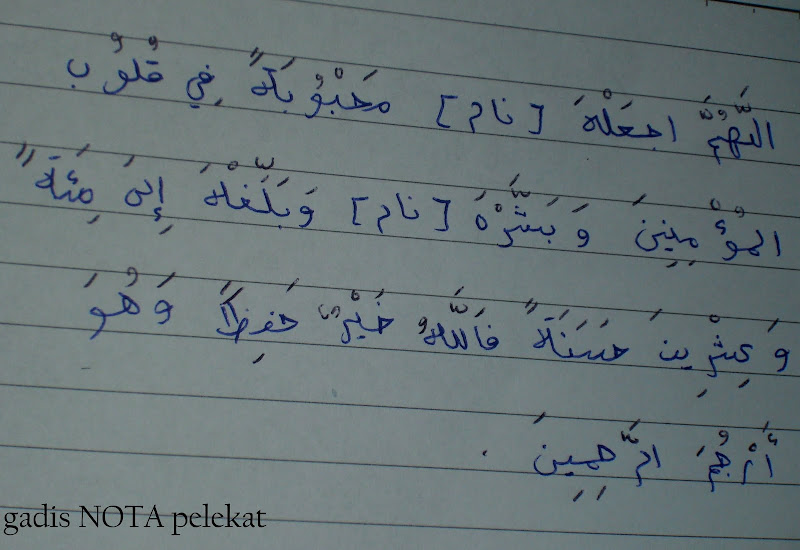 اللَّهُمَّ اجعَلْهَ [نام] مَحَبْوُبَةً فِي قُلُوُب
المُؤْمِنِينَ وَبَشَّرْهَ [نام] وَبَلَّغْهَ إِلىَ مِئَةً
وَعِشْرِينَ حَسَنَةً فَاللَّهُ خَيْرٌ حَفِظًا وَهُوَ
أَرْحُمَ الرَّحِمِينَ .
gadis NOTA pelekat